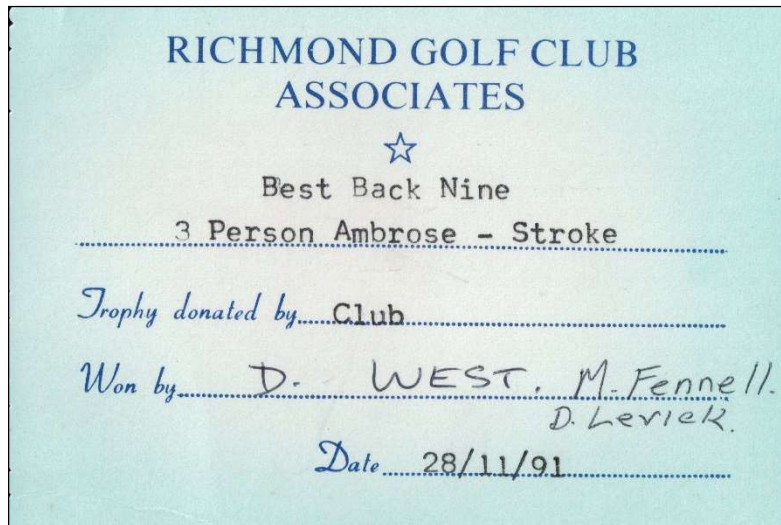 RICHMOND GOLF CLUB
ASSOCIATES
Best Back Nine
3 Person Ambrose - Stroke
Trophy donated by Club
Won by D. WEST. M. Fennell.
D. Levick.
Date 28/11/91